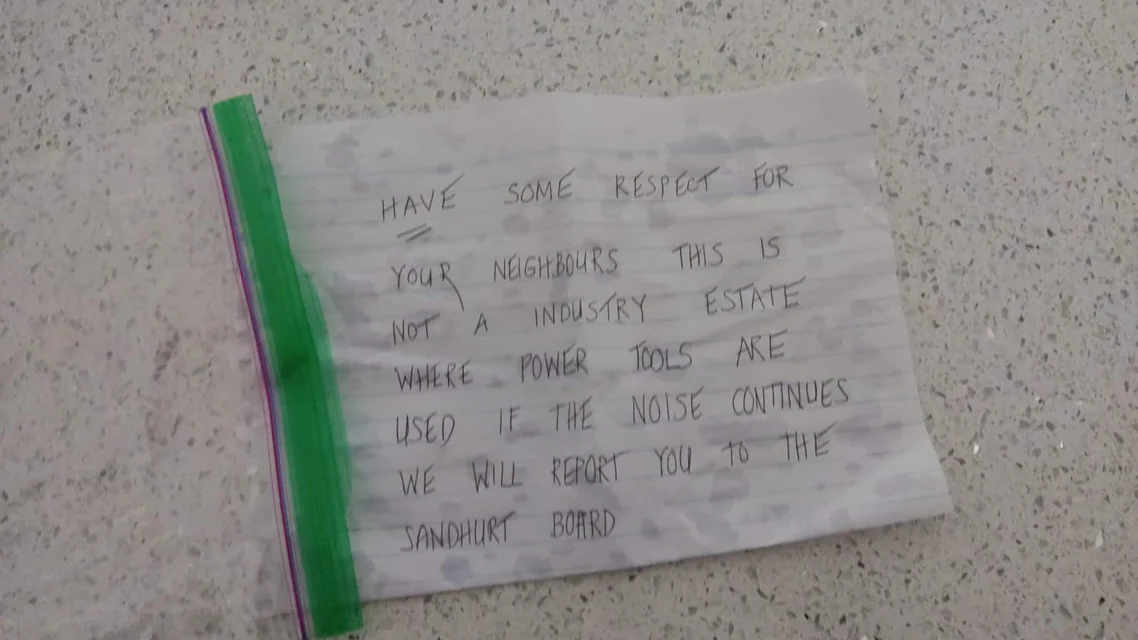 HAVE SOME RESPECT FOR
YOUR NEIGHBOURS THIS IS
NOT A INDUSTRY ESTATE
WHERE POWER TOOLS ARE
USED IF THE NOISE CONTINUES
WE WILL REPORT YOU TO THE
SANDHURT BOARD